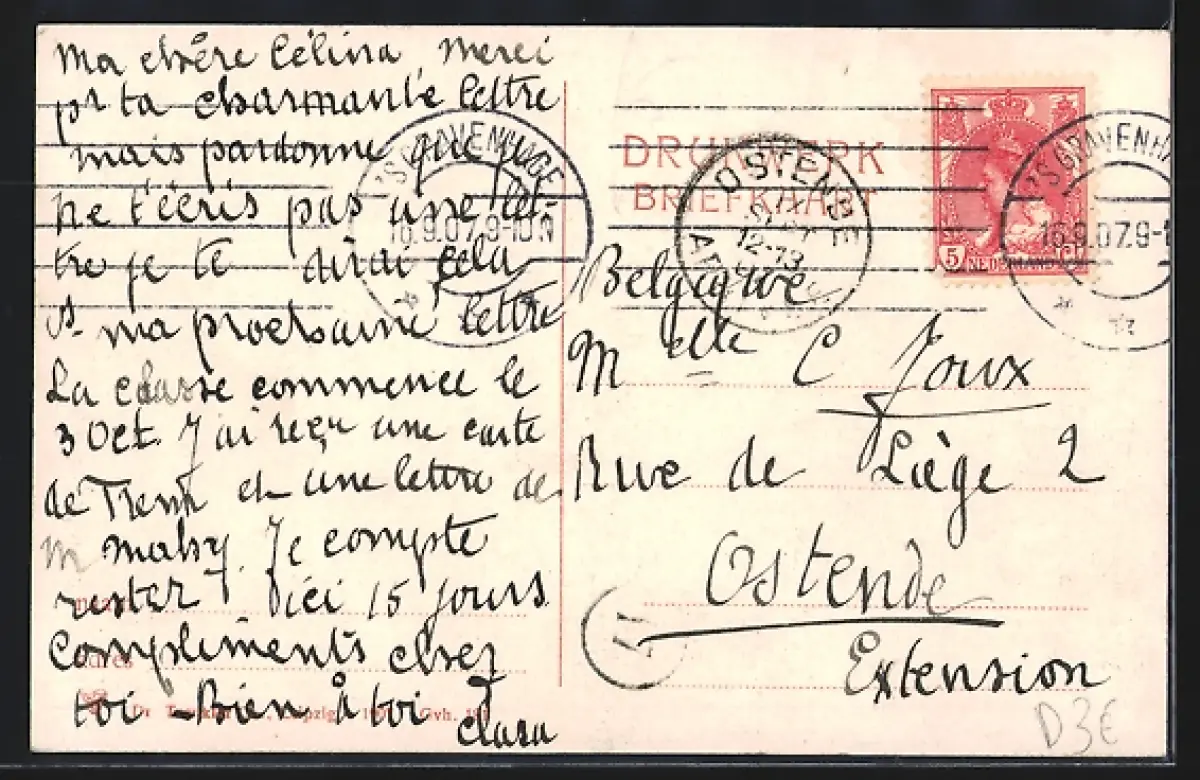 Ma chère Célina, Merci
pr ta charmante lettre
mais pardonne que je
ne t'écris pas une let-
tre je te dirai cela
ds ma prochaine lettre
La classe commence le
3 Oct. J'ai reçu une carte
de et une lettre de
M Mahy. Je compte
rester d'ici 15 jours
Compliments chez
toi - Bien à toi
Clara
DRUKWERK
BRIEFKAART
'S GRAVENHAGE
16.9.07.9-10
OSTENDE
12-13
5 NEDERLAND
'S GRAVENHA
16.9.07.9-1
Belgique
Melle C Joux
Rue de Liège 2
Ostende
Extension
Leipzig
D3€